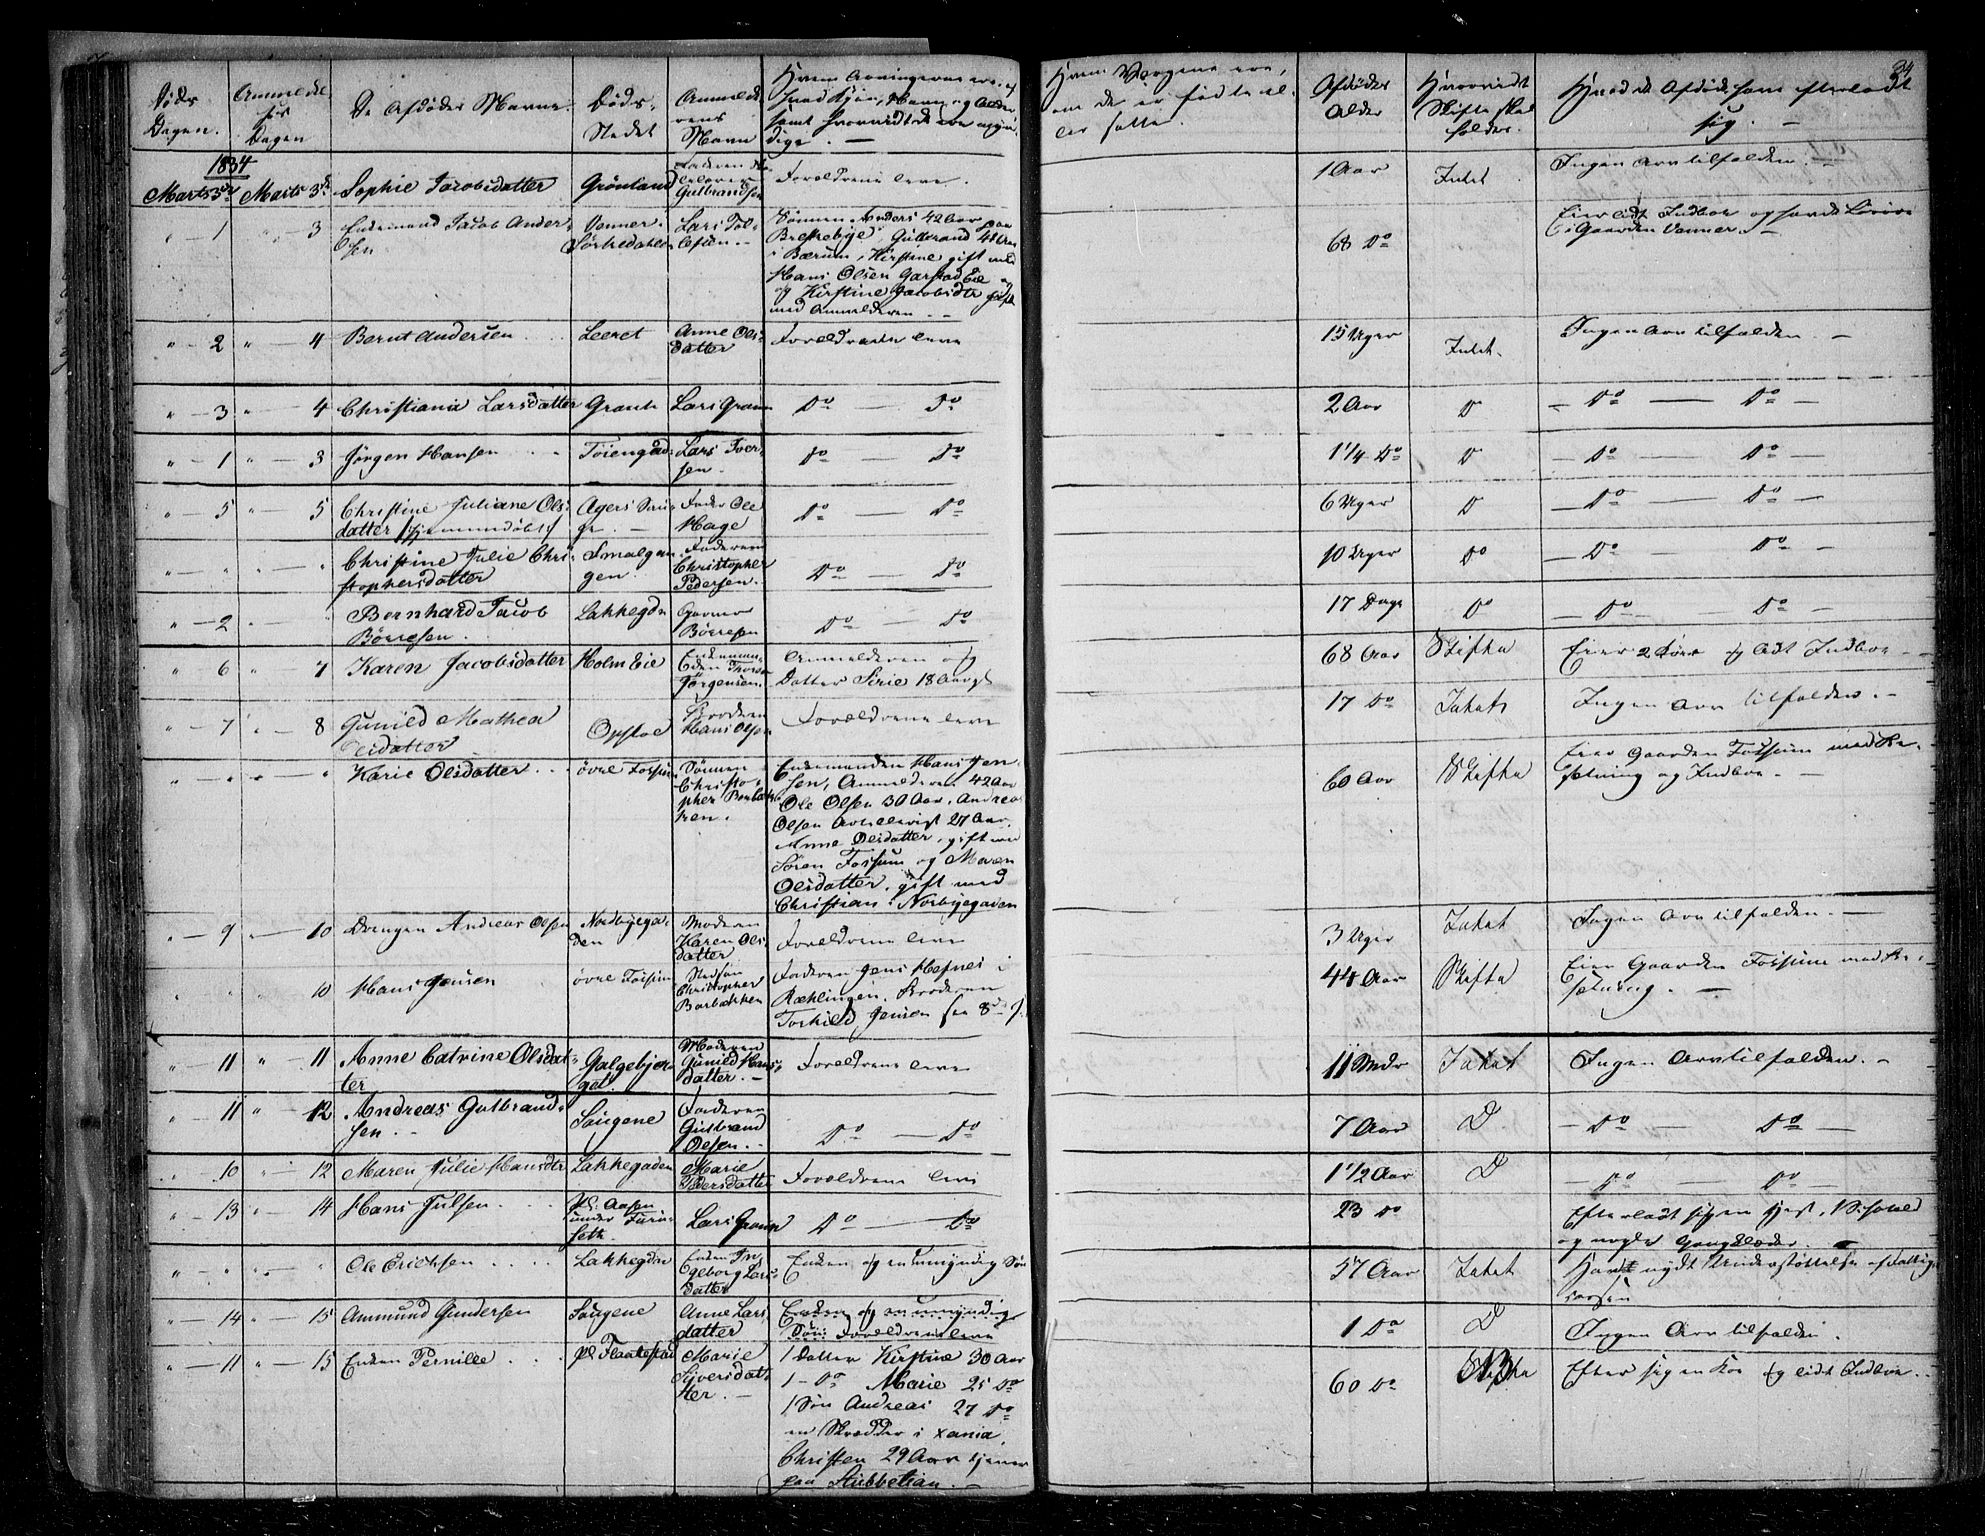 34
Døds
Dagen.
Anmeldel
ses
Dagen
De Afdødes Navne
Døds-
Stedet
Anmelde
rens
Navn
Hvem Arvingerne ere, af
hvad Kjøn, Navn og Alder
samt hvorvidt de ere umyn
dige. —
Hvem Vergene ere,
om de er fødte el-
ler satte.
Afdødes
Alder
Hvorvidt
Skifte skal
holdes.
Hvad de Afdøde have efterladt
sig. —
1834
Marts 3d Marts 3d Sophie Jacobsdatter Grønland Faderen
Gulbrandsen Forældrene leve. 1 Aar Intet Ingen Arv tilfalden. —
" — 1 " — 3 Enkemand Jacob Ander-
sen Venner
Sørkedalen Lars Tol-
lefsen — Sønnen Anders 42 Aar paa
Brekkebye, Gulbrand 48 Aar
i Bærum, Kirstine gift med
Hans Olsen Garstad Eie
og Kirstine Jacobsdtr gift
med Anmelderen — 68 Do Eier lidt Indboe og
i Gaarden Venner. —
" — 2 " — 4 Bernt Andersen Leeret Anne Ols-
datter Forældrene leve 15 Uger Intet. Ingen Arv tilfalden. —
" — 3 " — 4 Christiana Larsdatter Lars Do — Do 2 Aar D — Do — Do —
" — 1 " — 3 Jørgen Hansen Tøiengad Lars Iver-
sen Do — Do 1 1/4 Do D — Do — Do —
" — 5 " — 5 Christine Juliane Ols-
datter /hjemmedøbt/ Agers Sau-
ge. — Fader Ole
Hage Do — Do 6 Uger D — Do — Do —
" — " " — " Christine Julie Chri-
stophersdatter Smalgan-
gen Faderen
Christopher
Pedersen. Do — Do 10 Uger Do — Do — Do —
" — 2 " — " Bernhard Jacob
Børresen. Lakkegdn
Børresen Do — Do 17 Dage Do — Do — Do —
" 6 " — 7 Karen Jacobsdatter Holm Eie Enkeman-
den
Jørgensen. Anmelderen og
Datter Sirie 18 Aargl 68 Aar Skifte Eier 2 Køer og lidt Indboe —
" — 7 " — 8 Gunild Mathea
Olsdatter Opsloe Broderen
Hans Olsen Forældrene leve 17 Do Intet Ingen Arv tilfalden. —
" — " " — " Karie Olsdatter øvre Fossum Sønnen
Christo-
pher Enkemanden Hans Jen-
sen, Anmelderen 42 Aar
Ole Olsen 30 Aar, Andreas
Olsen 27 Aar,
Anne Olsdatter, gift med
Søren Fossum og Maren
Olsdatter, gift med
Christian i Norbyegaden 60 Aar Skifte Eier Gaarden Fossum med Be-
sætning og Indboe. —
" — 9 " — 10 Drengen Andreas Olsen Nordbyega-
den Moderen
Karen Ols-
datter Forældrene leve 3 Uger Intet Ingen Arv tilfalden. —
" " 10 Hans Jensen øvre Fossum Stedsøn
Christopher
Borbækken Faderen Jens i
Ræklingen. Broderen
Torkild Jensen 44 Aar Skifte Eier Gaarden Fossum med Be-
sætning. —
" 11 " — 11 Anne Catrine Olsdat-
ter Galgebjer-
get Moderen
Gunild Hans-
datter. — Forældrene leve 11 Mdr Intet Ingen Arv tilfalden. —
" — 11 " — 12 Andreas Gulbrand-
sen. — Saugene Faderen
Gulbrand
Olsen. — Do — Do 7 Aar D — Do — Do —
" 10 " — 12 Maren Julie Hansdtr Lakkegaden Marie
Pedersdatter Forældrene leve 1 1/2 Aar D — Do — Do —
" — 13 " — 14 Hans Julsen Pl. Aasen
under Furu-
seth Lars Do — Do 23 Do Efterladt sig en Hest,
og nogle Gangklæder.
" — " " — " Ole Erichsen Lakkegdn Enken In-
geborg Lars-
datter Enken og en umyndig Søn 57 Aar Intet Havt nydt Understøttelse af Fattig-
cassen
" — 14 " — 15 Ammund Gundersen Saugene Anne Lars-
datter Enken og en umyndig
Søn Forældrene leve 1 Do D Ingen Arv tilfalden.
" — 11 " — 15 Enken Pernille Pl. Flaatestad Marie
Sjversdat-
ter. — 1 Datter Kirstine 30 Aar
1 — Do Marie 25 Do
1 Søn Andreas 27 Do
en Skrædder i Xania,
Christen 29 Aar tjener
paa Stubbelian. — 60 Do Skifte Efter sig en Koe og lidt Indboe.